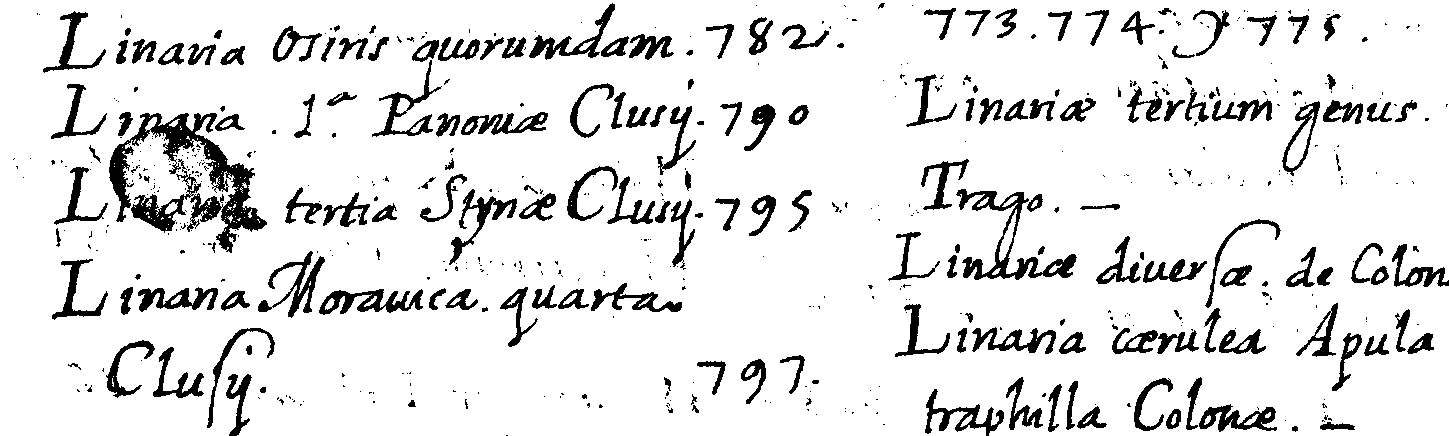 Linaria Osiris quorumdam. 782.
Linaria . 1.ª Panoniæ Clusij. 790
Linaria tertia Styriæ Clusij. 795
Linaria Morauica. quarta.
Clusij. 797.
773. 774. & 775.
Linariæ tertium genus.
Trago. —
Linariæ diuersæ. de Colon
Linaria cærulea Apula
traphilla Colonæ. —